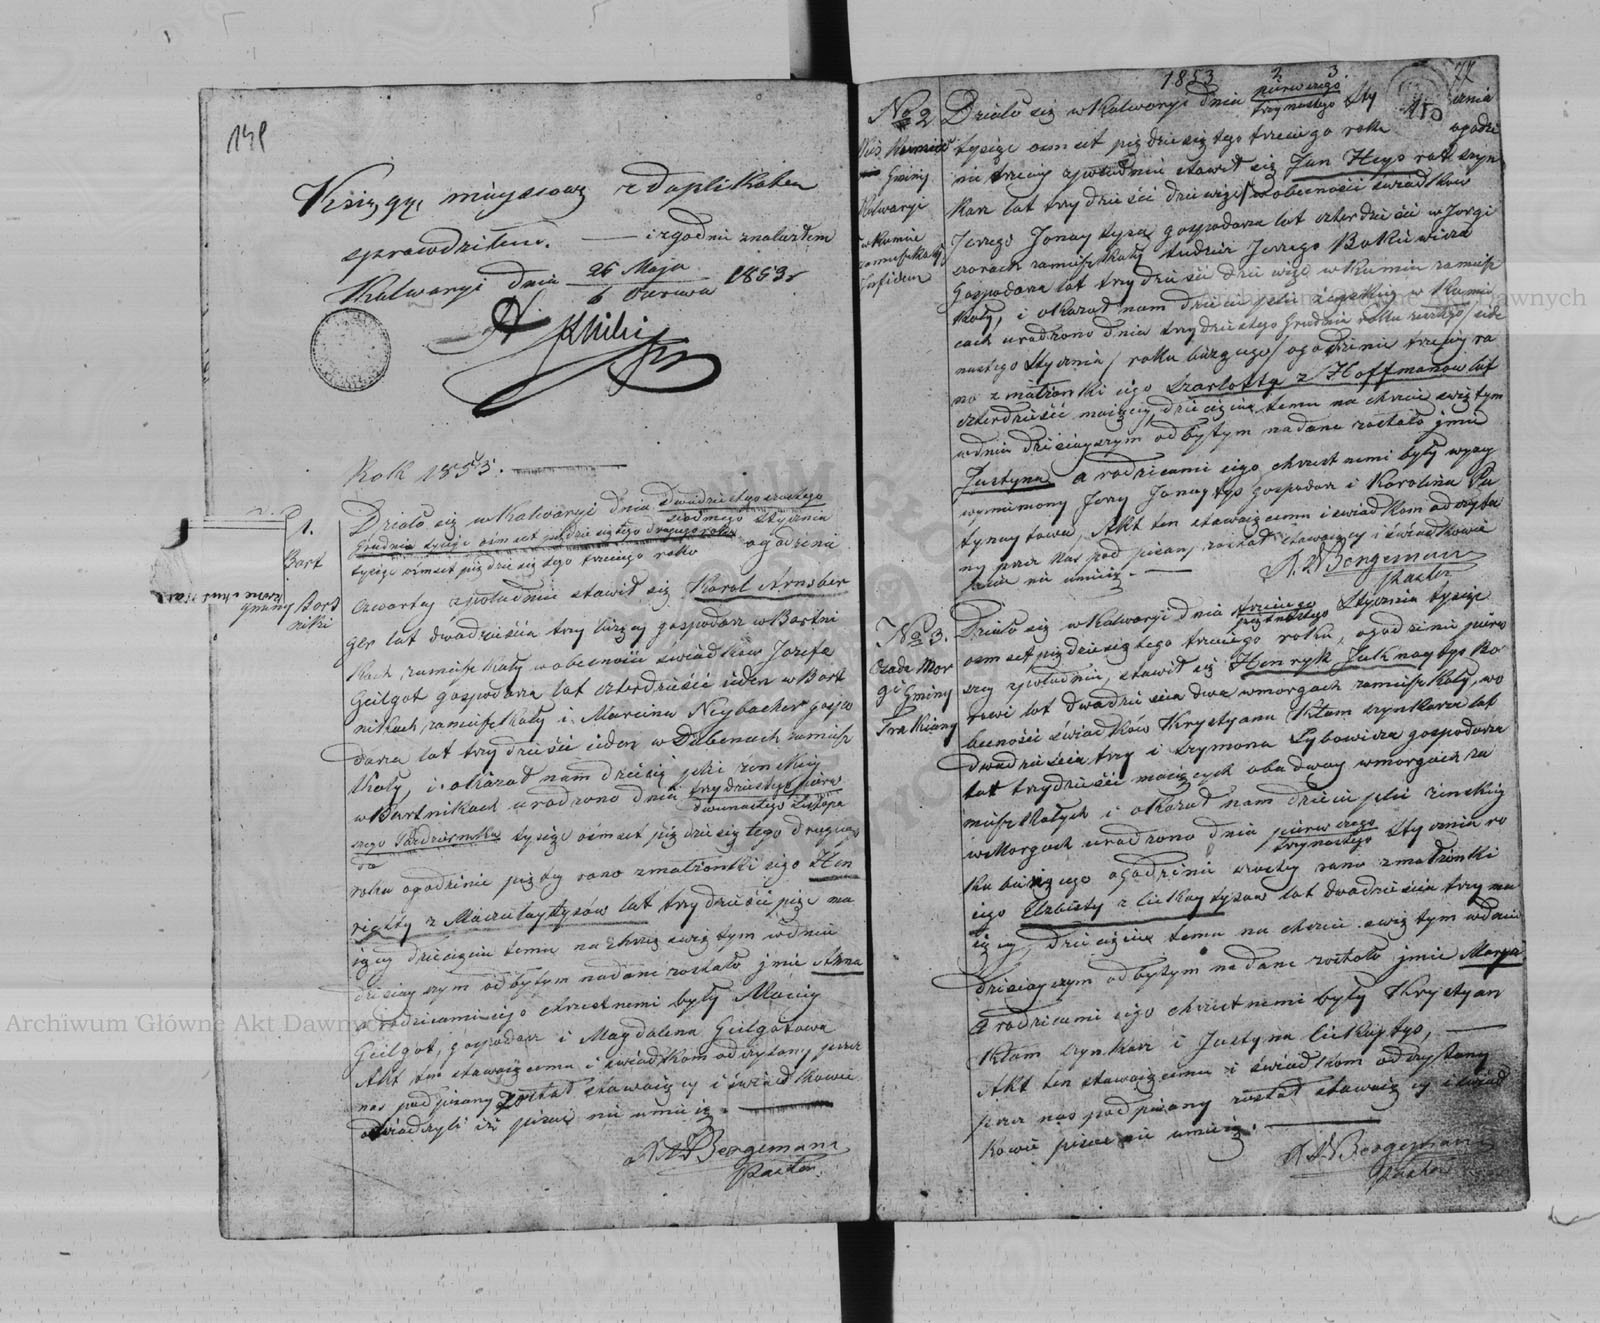 149
Księgę mieyscową z duplikatem
sprawdziłem. — i zgodnie znalazłem
Kalwaryi dnia 25 Maja / 6 Czerwca 1853 r
Rok 1853.
1.
Bart
gminy Bart
niki
Działo się w Kalwaryi dnia dwudziestego szóstego
Grudnia tysiąc ośmset pięćdziesiątego drugiego roku / siódmego Stycznia
tysiąc ośmset pięćdziesiątego trzeciego roku ogodzinie
czwartey zpołudnia stawił się Karol Arnsber
ger lat dwadzieścia trzy liczący gospodarz w Bartni
kach zamieszkały w obecności świadków Jozefa
Geilgot gospodarza lat czterdzieści ieden w Bart
nikach zamieszkały i Marcina Neybacher gospo
darza lat trzydzieści ieden w Dabenach zamiesz
kały, i okazał nam dziecię płci żeńskiey
w Bartnikach urodzone dnia trzydziestego pierw
szego Października / dwunastego Listopa
da tysiąc ośmset pięćdziesiątego drugiego
roku ogodzinie piątey rano z małżonki iego Hen
riety z Maczulaytysów lat trzydzieści pięć ma
iącey dziecięciu temu na chrzcie świętym w dniu
dzisieyszym odbytym nadane zostało imie Anna
a rodzicami iego chrzestnemi były Maciey
Geilgot, gospodarz i Magdalena Geilgotowa
Akt ten stawaiącemu i świadkom odczytany przez
nas podpisany został stawaiący i świadkowie
oświadczyli iż pisać nie umieią.
Bergemann
Pastor.
1853 2 3. 77
150
No 2
Gminy
Kalwaryi
Działo się w Kalwaryi dnia pierwszego / trzynastego Stycznia
tysiąc osmset pięćdziesiątego trzeciego roku ogodzi
nie trzeciey zpołudnia stawił się Jan Heyo rat szyn
karz lat trzydzieści dziewięć w obecności świadków
Jerzego Jonaytysa gospodarza lat czterdzieści w Jorgi
szorach zamieszkały tudzież Jerzego Bakiewicza
Gospodarza lat trzydzieści dziewięć w kumiu zamiesz
kały, i okazał nam dziecię płci żeńskiey w Kumie
cach urodzone dnia trzydziestego Grudnia roku zeszłego / iede
nastego Stycznia / roku bieżącego / ogodzinie trzeciey ra
no z małżonki iego Szarlotty z Hoffmanów lat
czterdzieści maiącey, dziecięciu temu na chrzcie świętym
w dniu dzisieyszym odbytym nadane zostało imie
Justyna a rodzicami iego chrzestnemi były wyzey
wymieniony Jerzy Jonaytys gospodarz i Karolina
Akt ten stawaiącemu i świadkom odczyta
ny przez nas podpisany został stawaiący i świadkowie
pisać nie umieią. —
Bergemann
Pastor
No 3.
Gminy
Trakiany
Działo się w Kalwaryi dnia trzeciego / piętnastego Stycznia tysiąc
osmset pięćdziesiątego trzeciego roku, ogodzinie pierw
szey zpołudnia, stawił się Henryk Juknaytys Ko
rowi lat dwadzieścia dwa wmorgach zamieszkały, wo
becności świadków Krystyana Kłam szynkarza lat
dwadzieścia trzy i Szymona Lybowicza gospodarza
lat trzydzieści maiących obadway wmorgach za
mieszkałych i okazał nam dziecię płci żenskiey
wMorgach urodzone dnia pierwszego / trzynastego Stycznia ro
ku bieżącego ogodzinie szostey rano zmałżonki
iego Elzbiety z Lieknaytysow lat dwadzieścia trzy ma
iącey, dziecięciu temu na chrzcie świętym w dniu
dzisieyszym odbytym nadane zostało imie Marya
a rodzicami iego chrzestnemi były Krystyan
Kłam szynkarz i Justyna Liekaytys, —
Akt ten stawaiącemu i świadkom odczytany
przez nas podpisany został stawaiący i świad
kowie pisać nie umieią. —
Bergemann
Pastor
Archiwum Główne Akt Dawnych
Archiwum Główne Akt Dawnych